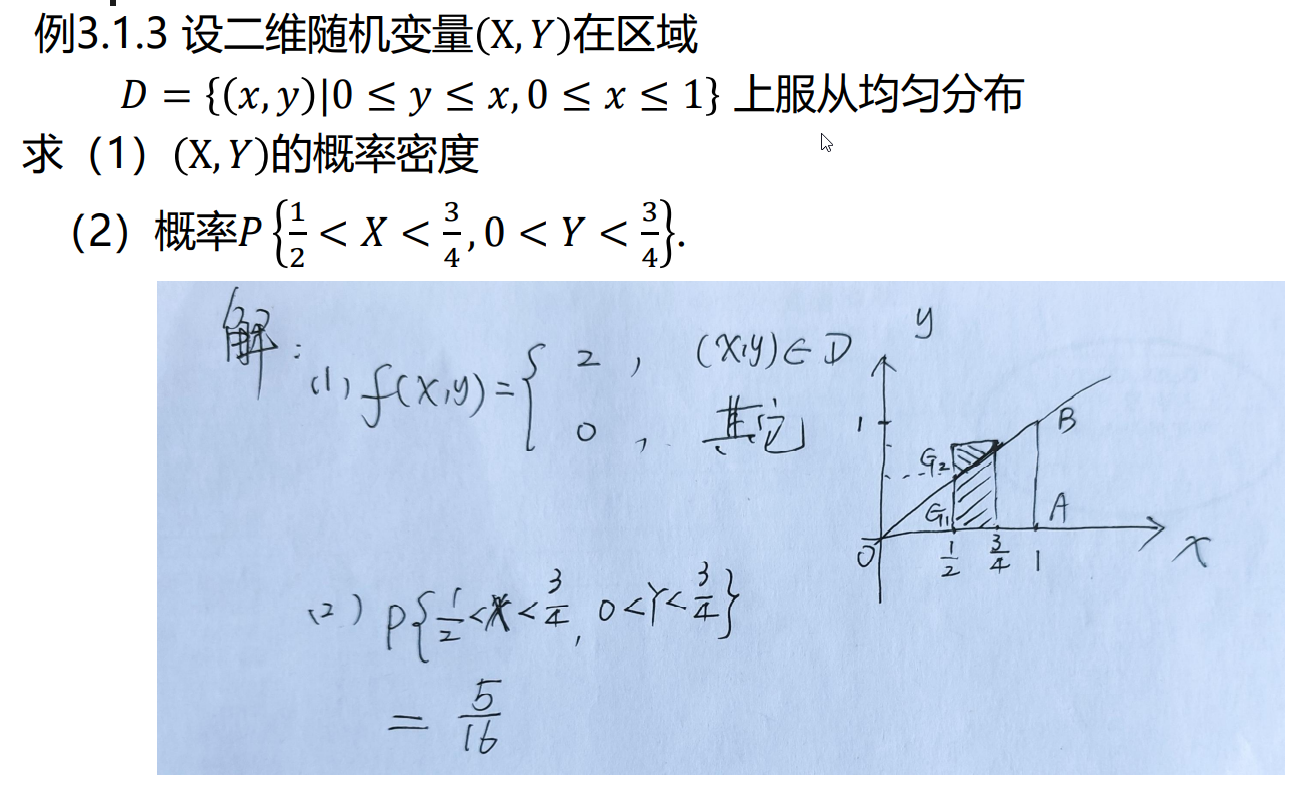 例3.1.3 设二维随机变量(X, Y)在区域
D = {(x, y)|0 ≤ y ≤ x, 0 ≤ x ≤ 1} 上服从均匀分布
求（1）(X, Y)的概率密度
（2）概率P{1/2 < X < 3/4, 0 < Y < 3/4}.
解：
(1) f(x,y) = { 2 , (x,y)∈D
0 , 其它
y
1
B
G2
G1
A
O
1/2
3/4
1
x
(2) P{1/2 < X < 3/4, 0 < Y < 3/4}
= 5/16